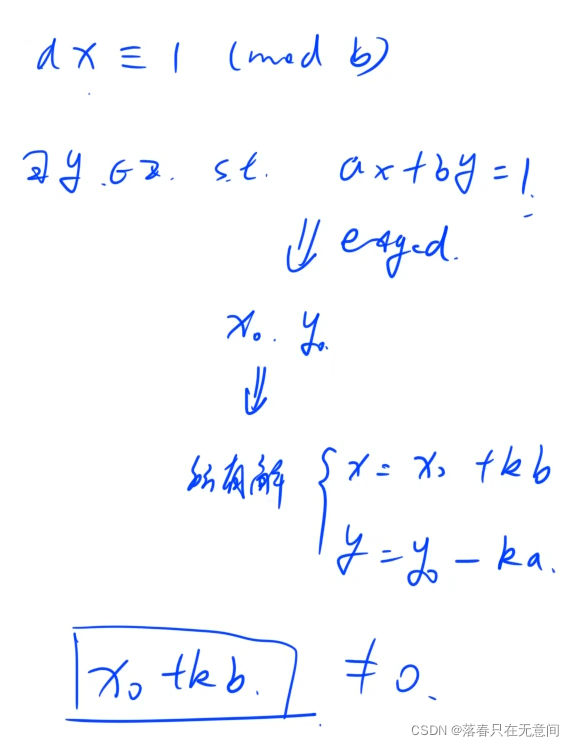 ax ≡ 1 (mod b)
∃ y ∈ Z. s.t. ax+by=1.
⇓ exgcd.
x₀. y₀.
⇓
所有解 { x = x₀ + kb
y = y₀ - ka.
x₀ + kb. ≠ 0.
CSDN @落春只在无意间